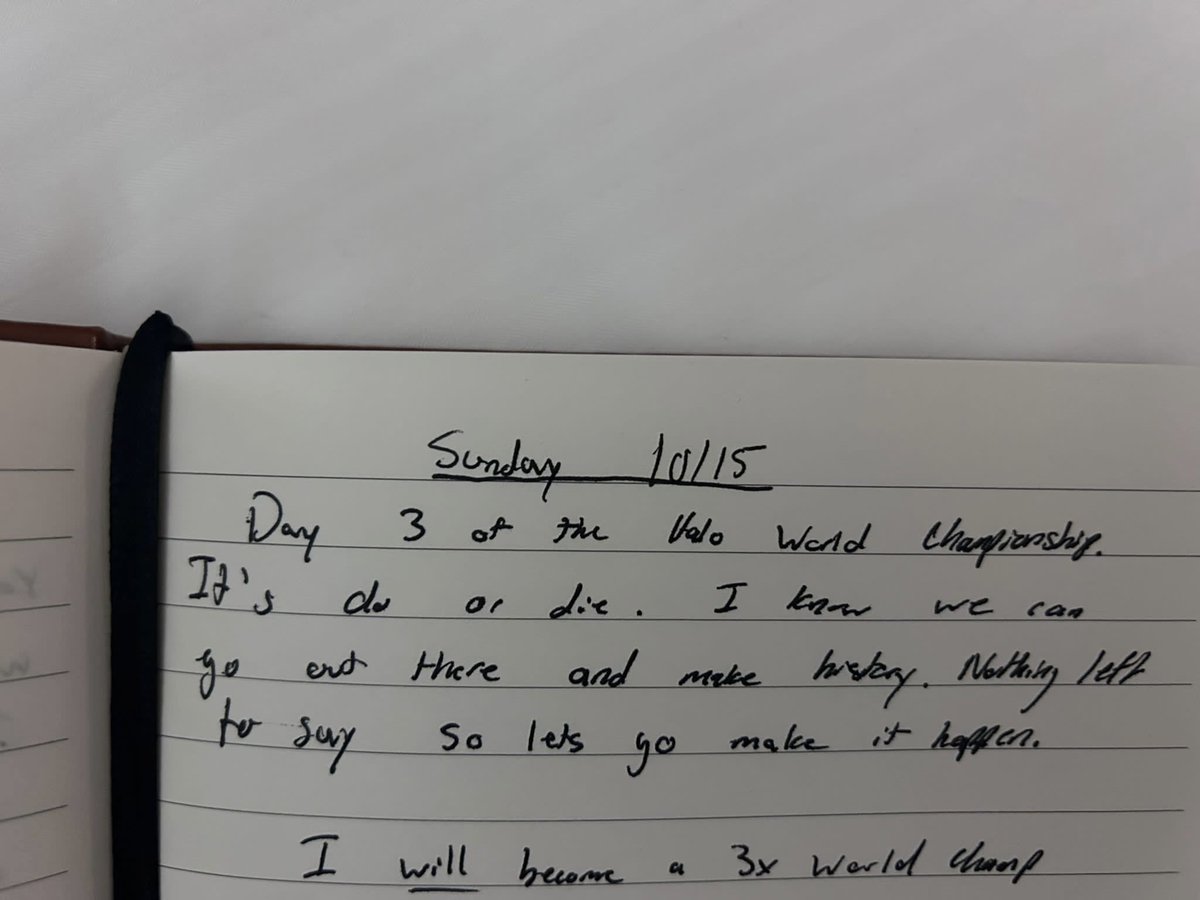 Sunday 10/15
Day 3 of the Halo World Championship.
It's do or die. I know we can
go out there and make history. Nothing left
to say so lets go make it happen.
I will become a 3x world champ